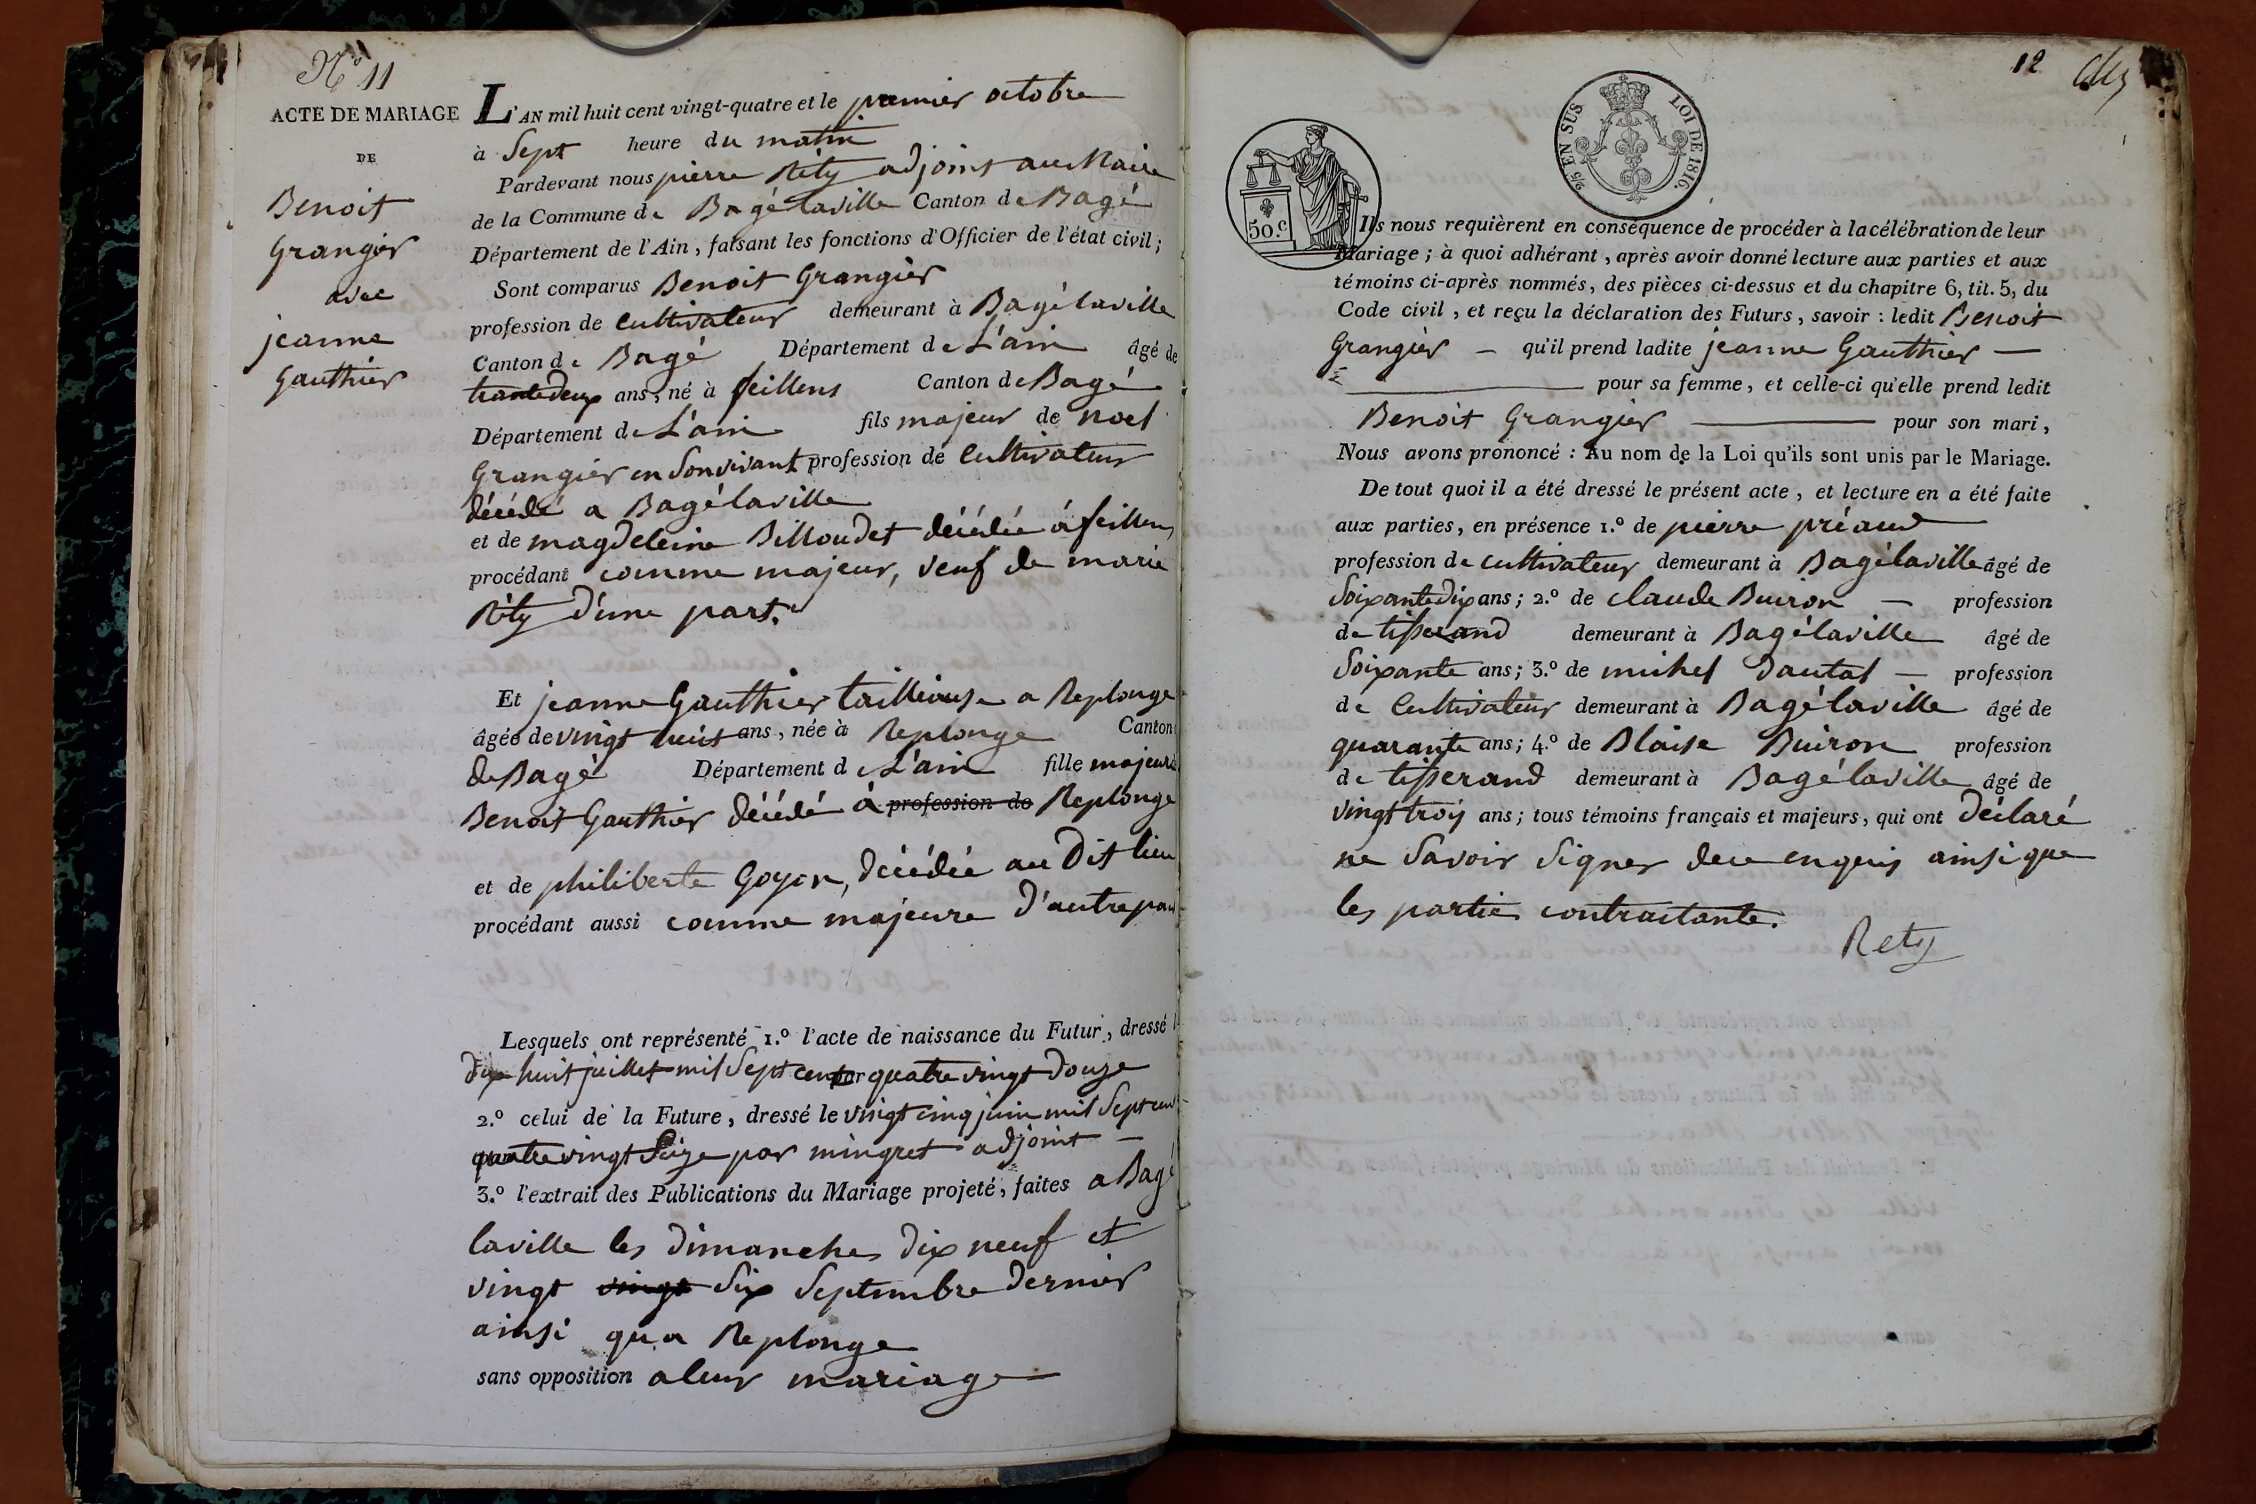 N° 11
ACTE DE MARIAGE
DE
Benoit
Grangier
avec
jeanne
Gauthier
L'AN mil huit cent vingt-quatre et le premier octobre
à Sept heure du matin
Pardevant nous pierre Réty adjoint au Maire
de la Commune de Bagé laville Canton de Bagé
Département de l'Ain, faisant les fonctions d'Officier de l'état civil;
Sont comparus Benoit Grangier
profession de Cultivateur demeurant à Bagé laville
Canton de Bagé Département de L'ain âgé de
trantedeux ans, né à feillens Canton de Bagé
Département de L'ain fils majeur de noel
Grangier en Son vivant profession de Cultivateur
décédé a Bagélaville
et de magdeleine Billoudet décédée à feillens
procédant comme majeur, veuf de marie
Réty d'une part.
Et jeanne Gauthier tailleuse a Replonge
âgée de vingt huit ans, née à Replonge Canton
de Bagé Département de L'ain fille majeure
Benoit Gauthier décédé à profession de Replonge
et de philiberte Goyon, décédée au Dit lieu
procédant aussi comme majeure d'autre part
Lesquels ont représenté 1.° l'acte de naissance du Futur, dressé l
Dix huit juillet mil Sept cent par quatre vingt Douze
2.° celui de la Future, dressé le vingt cinq juin mil Sept cent
quatre vingt Seize par mingret adjoint —
3.° l'extrait des Publications du Mariage projeté, faites a Bagé
laville les dimanches dix neuf et
vingt vingt Six Septembre dernier
ainsi qu a Replonge
sans opposition a leur mariage —
12
9/5 EN SUS LOI DE 1816.
50.c
Ils nous requièrent en conséquence de procéder à la célébration de leur
Mariage; à quoi adhérant, après avoir donné lecture aux parties et aux
témoins ci-après nommés, des pièces ci-dessus et du chapitre 6, tit. 5, du
Code civil, et reçu la déclaration des Futurs, savoir : ledit Benoit
Grangier — qu'il prend ladite jeanne Gauthier —
pour sa femme, et celle-ci qu'elle prend ledit
Benoit Grangier — pour son mari,
Nous avons prononcé : Au nom de la Loi qu'ils sont unis par le Mariage.
De tout quoi il a été dressé le présent acte, et lecture en a été faite
aux parties, en présence 1.° de pierre préaud
profession de cultivateur demeurant à Bagélaville âgé de
Soixante dix ans; 2.° de claude Buiron — profession
de tisserand demeurant à Bagélaville âgé de
Soixante ans; 3.° de mihel Dautal — profession
de Cultivateur demeurant à Bagélaville âgé de
quarante ans; 4.° de Blaise Buiron profession
de tisserand demeurant à Bagélaville âgé de
vingt troij ans; tous témoins français et majeurs, qui ont déclaré
ne Savoir Signer de ce enquis ainsi que
les partie contractante.
Rety